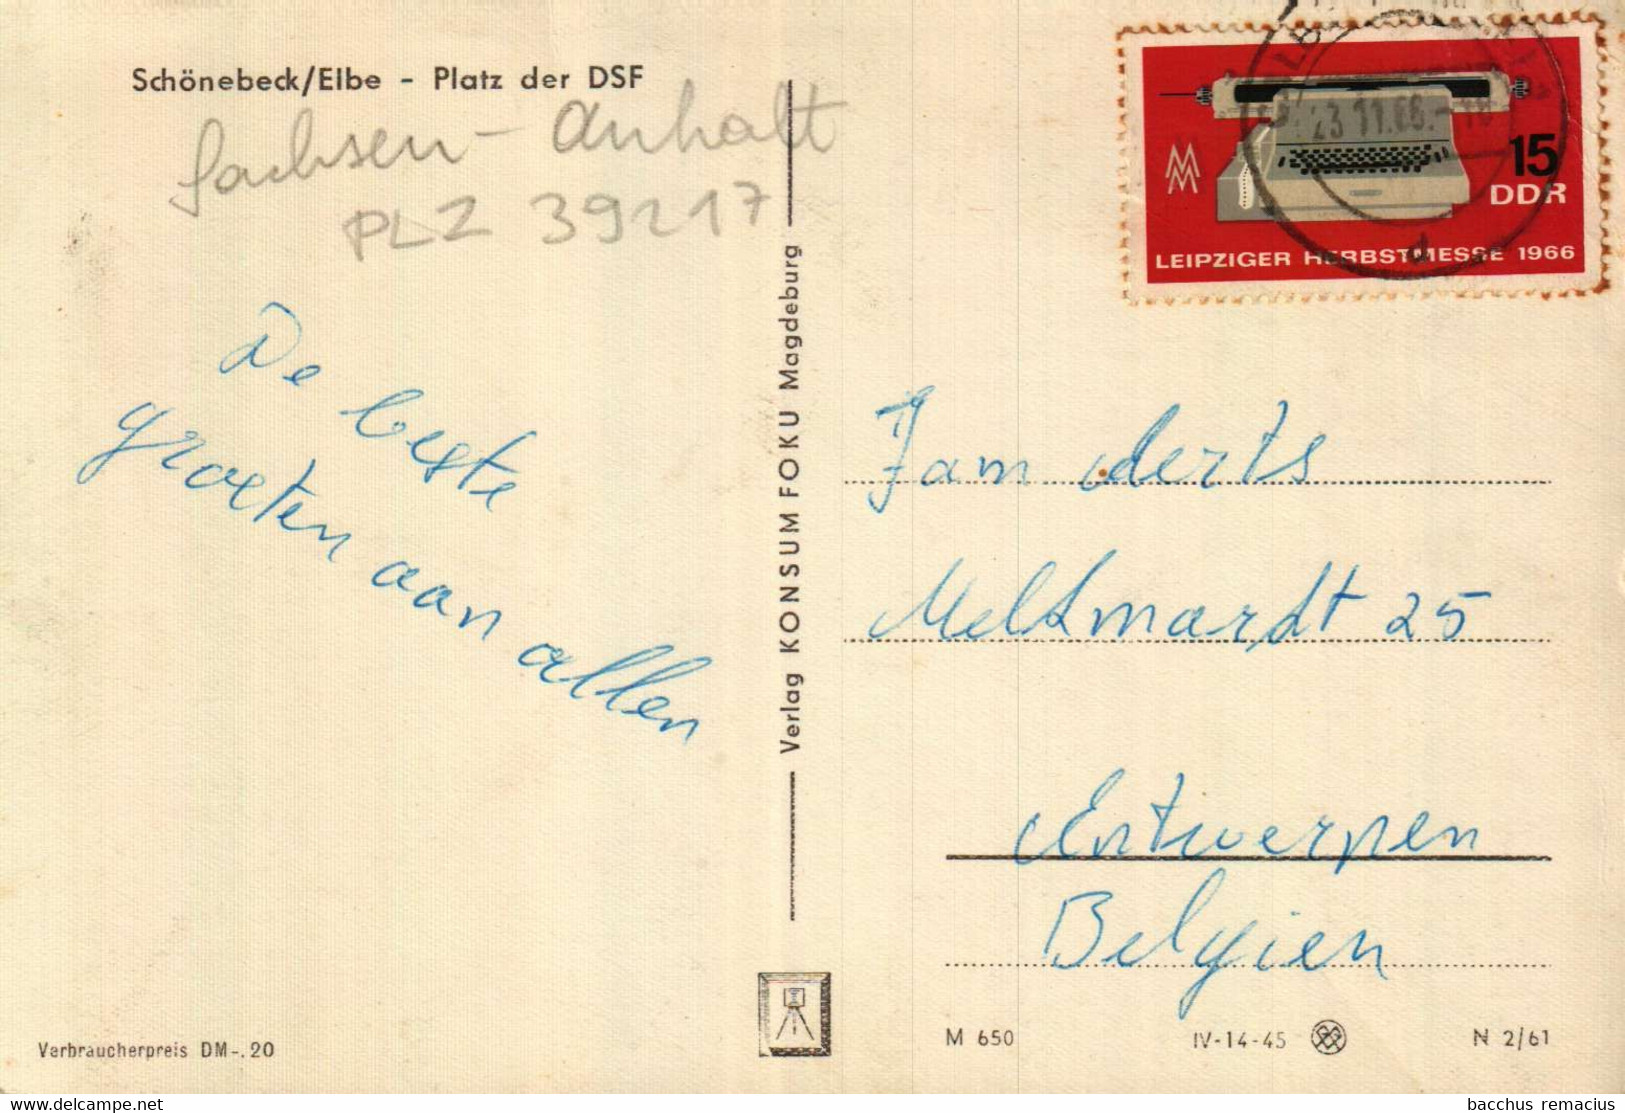 Schönebeck/Elbe - Platz der DSF
Sachsen-Anhalt
PLZ 39217
De beste
groeten aan allen
Verlag KONSUM FOKU Magdeburg
23.11.66.-18
d
MM
15
DDR
LEIPZIGER HERBSTMESSE 1966
Jam Aerts
Melkmarkt 25
Antwerpen
Belgien
Verbraucherpreis DM-.20
M 650
IV-14-45
N 2/61
bacchus remacius
www.delcampe.net